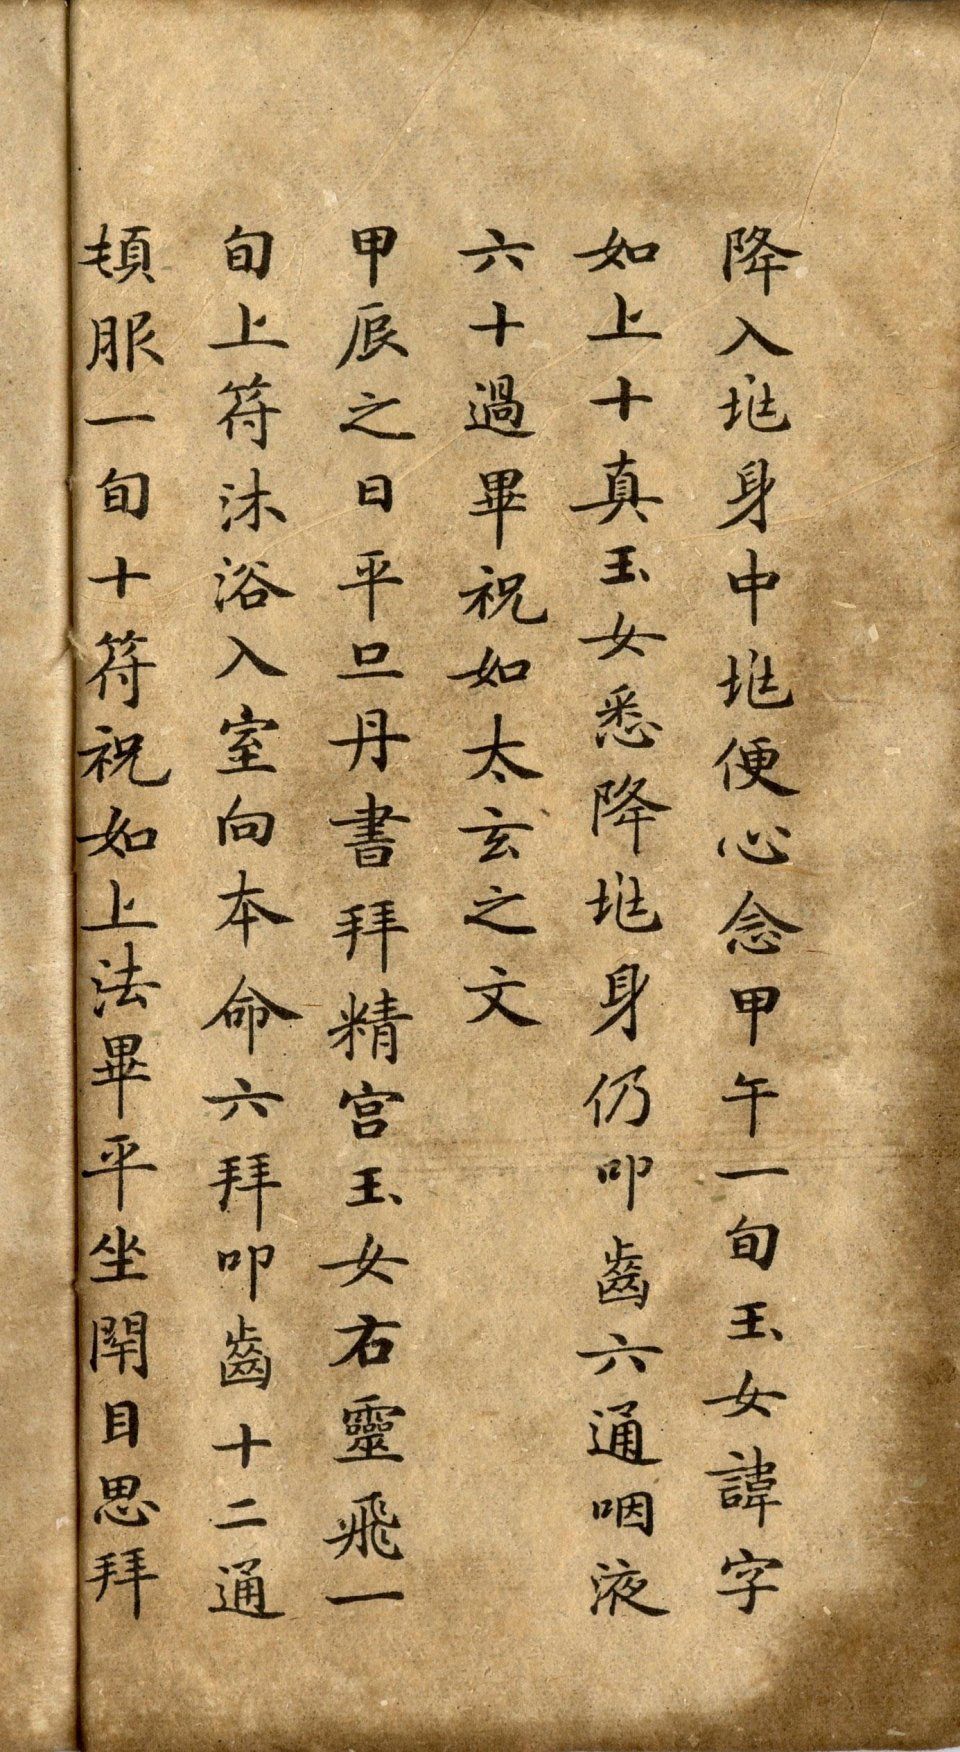 降入垗身中垗便心念甲午一旬玉女諱字
如上十真玉女悉降垗身仍叩齒六通咽液
六十過畢祝如太玄之文
甲辰之日平旦丹書拜精宮玉女右靈飛一
旬上符沐浴入室向本命六拜叩齒十二通
頓服一旬十符祝如上法畢平坐閉目思拜